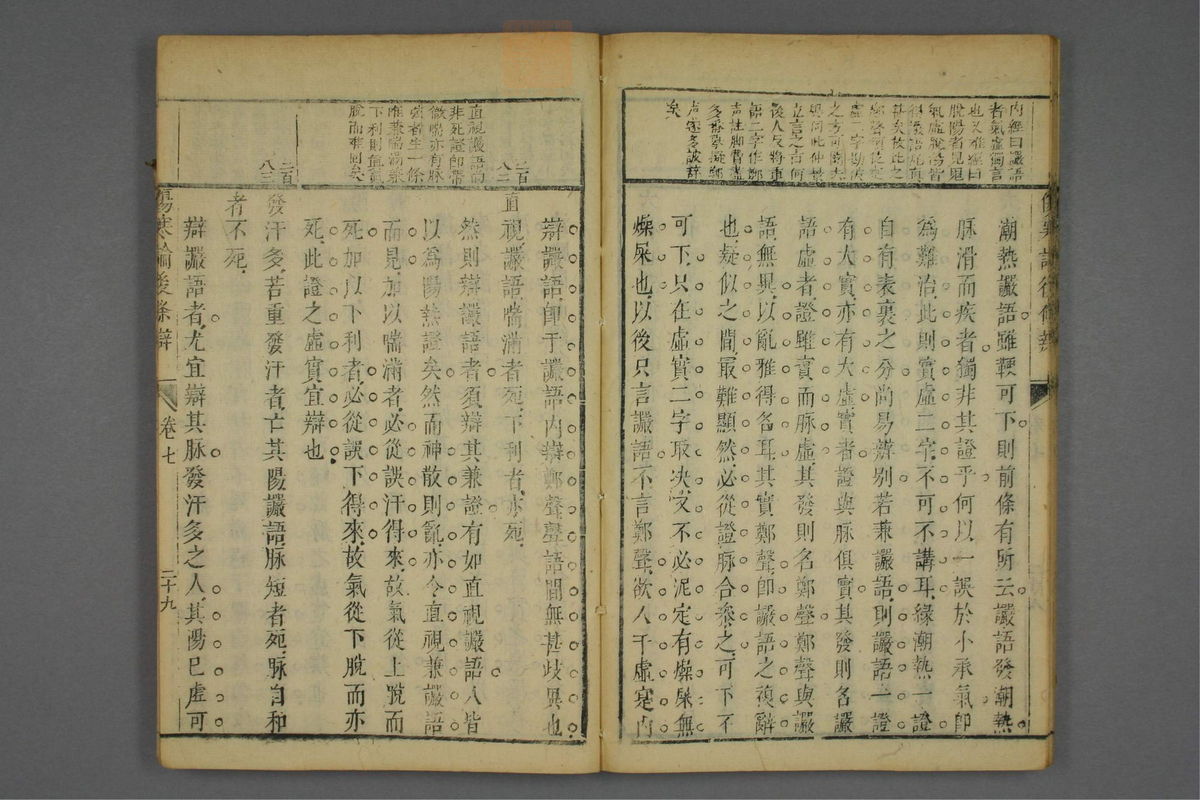 內經曰讝語
者氣虛獨言
也又難經曰
脫陽者見鬼
潮熱讝語雖鞕可下則前條有所云讝語發潮熱
脉滑而疾者獨非其證乎何以一誤於小承氣即
為難治此則實虛二字不可不講耳緣潮熱一證
自有表裏之分尚易辨別若兼讝語則讝語一證
有大實亦有大虛實者證與脉俱實其發則名讝
語虛者證雖實而脉虛其發則名鄭聲鄭聲與讝
語無異以亂雅得名耳其實鄭聲即讝語之複辭
也疑似之間最難顯然必從證脉合參之可下不
可下只在虛實二字取决又不必泥定有燥屎無
燥屎也以後只言讝語不言鄭聲欲人于虛寔内
直視讝語喘
非死證即帶
微喘亦有脉
弦者生一條
唯兼喘滿兼
下利則真氣
脫而難回矣
二百
八二
二百
八三
辯讝語即于讝語内辯鄭聲聲語間無甚歧異也
直視讝語喘滿者死下利者亦死
然則辯讝語者須辯其兼證有如直視讝語人皆
以為陽熱證矣然而神散則亂亦令直視兼讝語
而見加以喘滿者必從誤汗得來故氣從上脫而
死加以下利者必從誤下得來故氣從下脫而亦
死此證之虛實宜辯也
發汗多若重發汗者亡其陽讝語脉短者死脉自和
者不死
辯讝語者尤宜辯其脉發汗多之人其陽已虛可
傷寒論後條辯
卷七
二十九